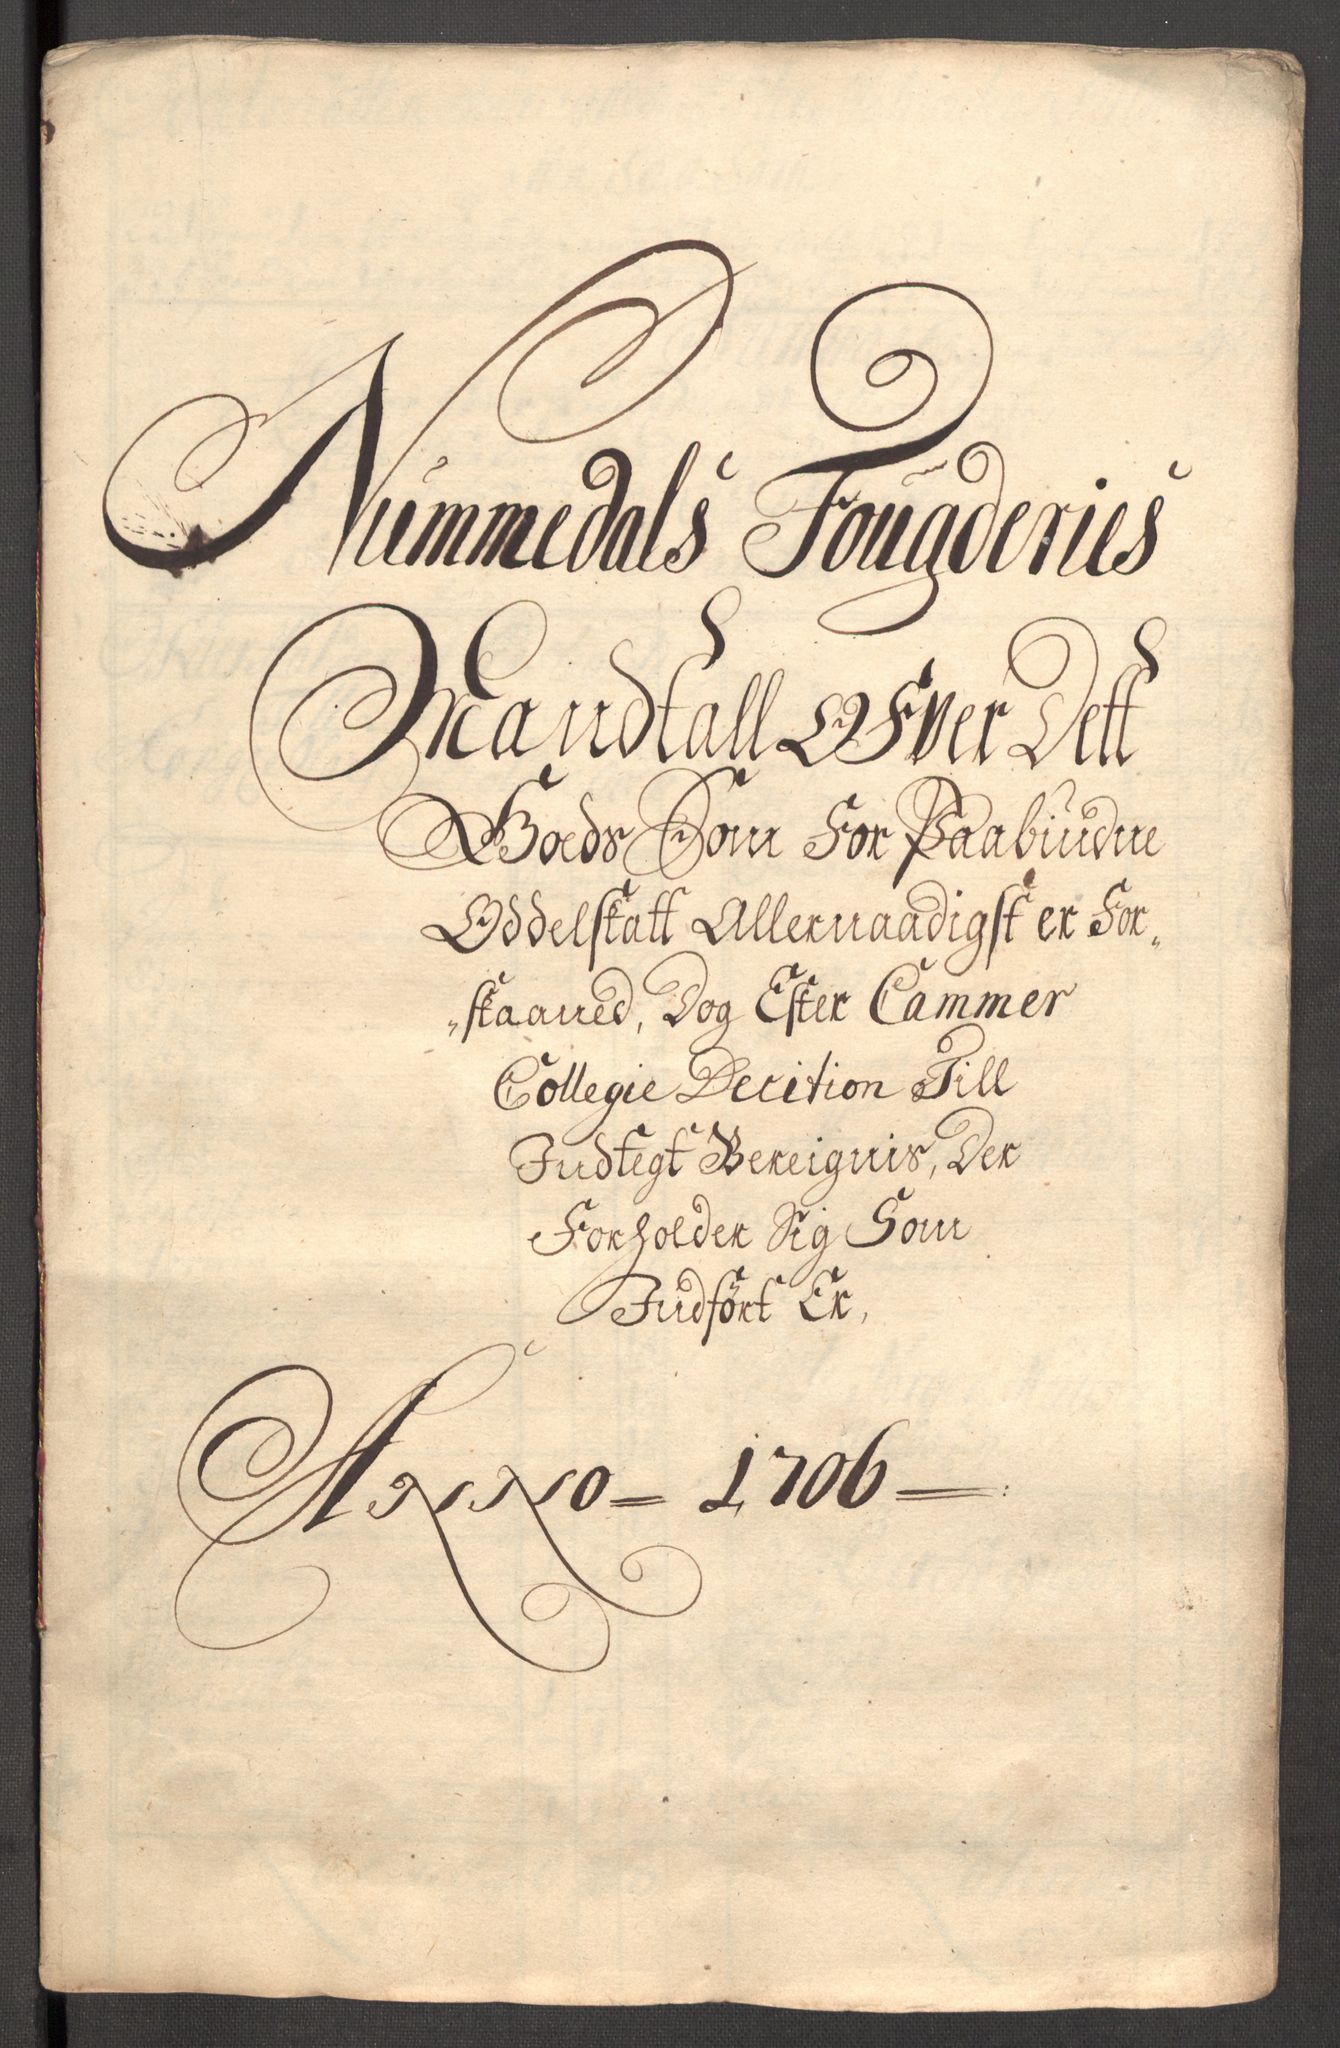 Nummedals Fougderies
Mandtall Ofver Dett
Goeds Som For Paabudne
Oddelskatt Allernaadigst er For-
-skaaned, Dog Efter Cammer
Collegie Decition Till
Indtegt Bereignis, Der
Forholder Sig Som
Indført Er,
Anno = 1706 =